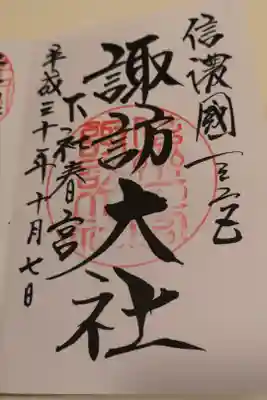 信濃國一之宮
諏訪大社
下社春宮
平成三十年十月七日